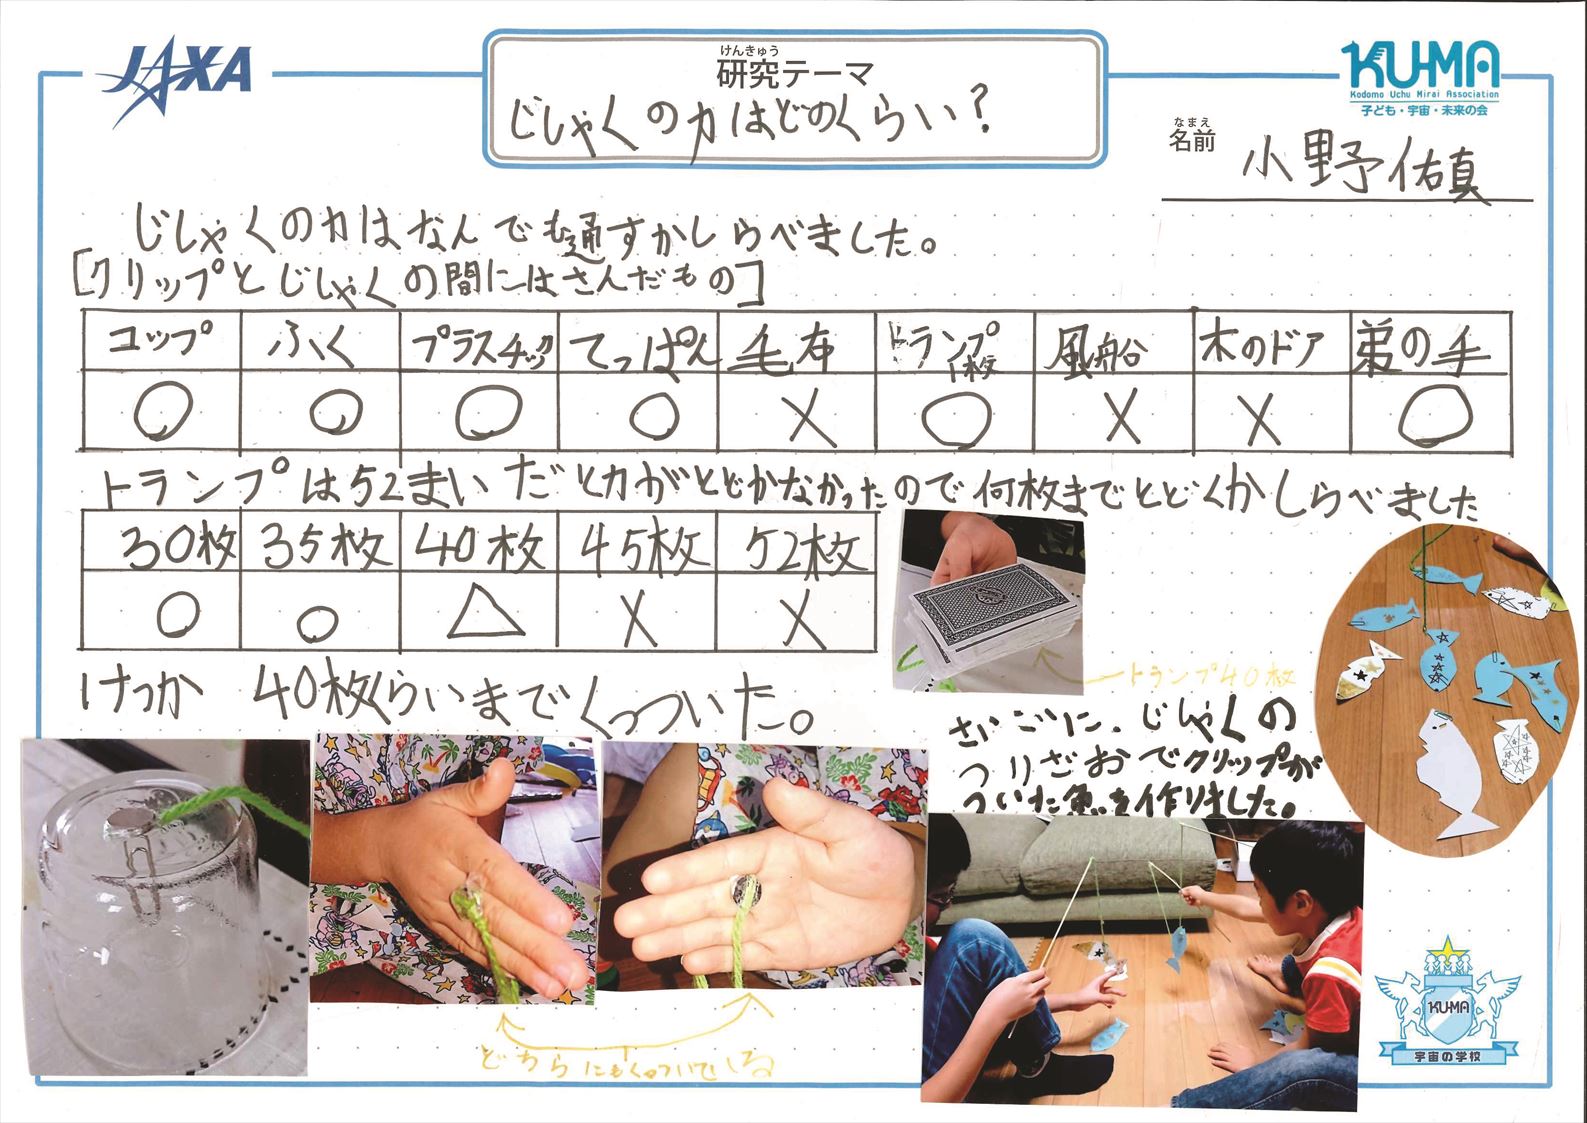 JAXA
けんきゅう
研究テーマ
じしゃくの力はどのくらい？
KU-MA
Kodomo Uchu Mirai Association
子ども・宇宙・未来の会
なまえ
名前
小野佑真
じしゃくの力はなんでも通すかしらべました。
[クリップとじしゃくの間にはさんだもの]
コップ ふく プラスチック てっぱん 毛布 トランプ1枚 風船 木のドア 弟の手
○ ○ ○ ○ × ○ × × ○
トランプは52まいだと力がとどかなかったので何枚までとどくかしらべました
30枚 35枚 40枚 45枚 52枚
○ ○ △ × ×
けっか 40枚くらいまでくっついた。
トランプ40枚
さいごに、じしゃくの
つりざおでクリップが
ついた魚を作りました。
どちらにもくっついている
KU-MA
宇宙の学校